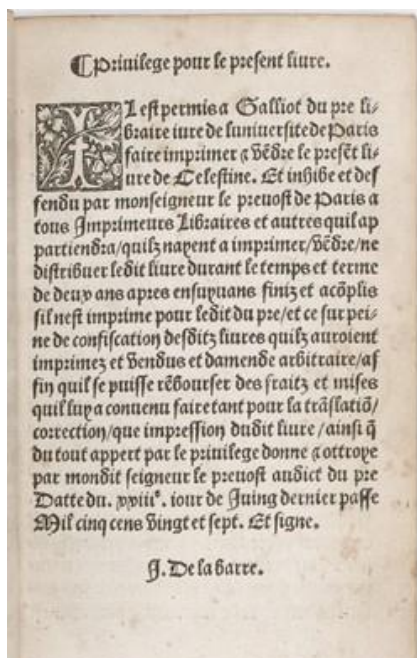 ⸿Priuilege pour le present liure.
IL est permis a Galliot du pre li-
braire iure de luniuersite de Paris
faire imprimer ⁊ vẽdre le presẽt li-
ure de Celestine. Et inhibe et def
fendu par monseigneur le preuost de Paris a
tous Imprimeurs Libraires et autres quil ap
partiendra/quilz nayent a imprimer/vẽdre/ne
distribuer ledit liure durant le temps et terme
de deux ans apres ensuyuans finiz et acõplis
sil nest imprime pour ledit du pre/et ce sur pei-
ne de confiscation desditz liures quilz auroient
imprimez et vendus et damende arbitraire/af
fin quil se puisse rẽbourser des fraitz et mises
quil luy a conuenu faire tant pour la trãslatiõ/
correction/que impression dudit liure/ainsi q̃
du tout appert par le priuilege donne ⁊ ottroye
par mondit seigneur le preuost audict du pre
Datte du. xxiii⁹. iour de Juing dernier passe
Mil cinq cens vingt et sept. Et signe.
J. De la barre.